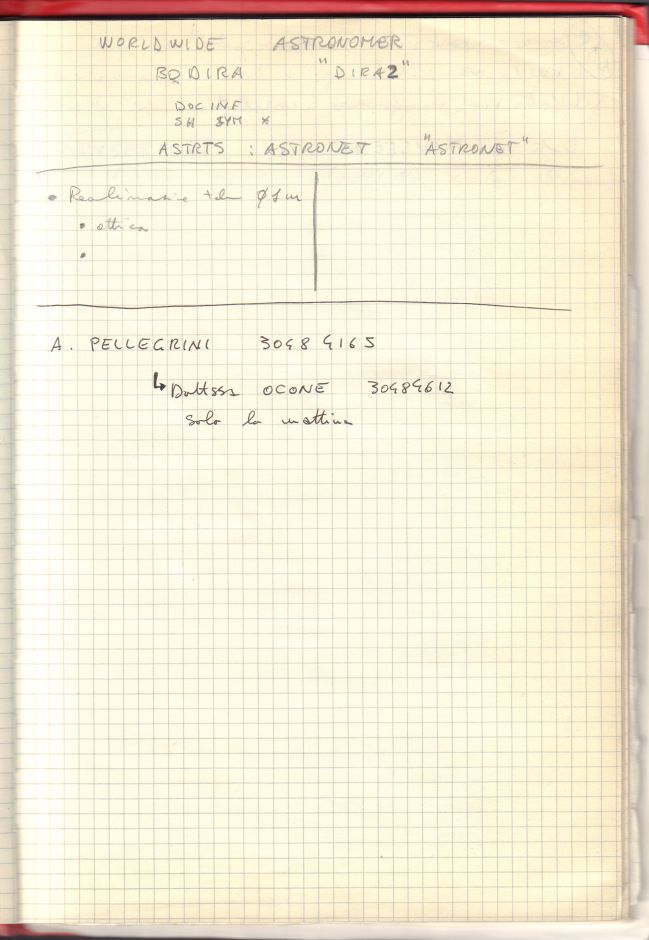 WORLD WIDE ASTRONOMER
BQDIRA "DIRA2"
DOCINF
SH SYM *
ASTRTS : ASTRONET "ASTRONET"
• ø1m
• ottica
•
A. PELLEGRINI 3048 4165
↳ Dottssa OCONE 30484612
solo la mattina